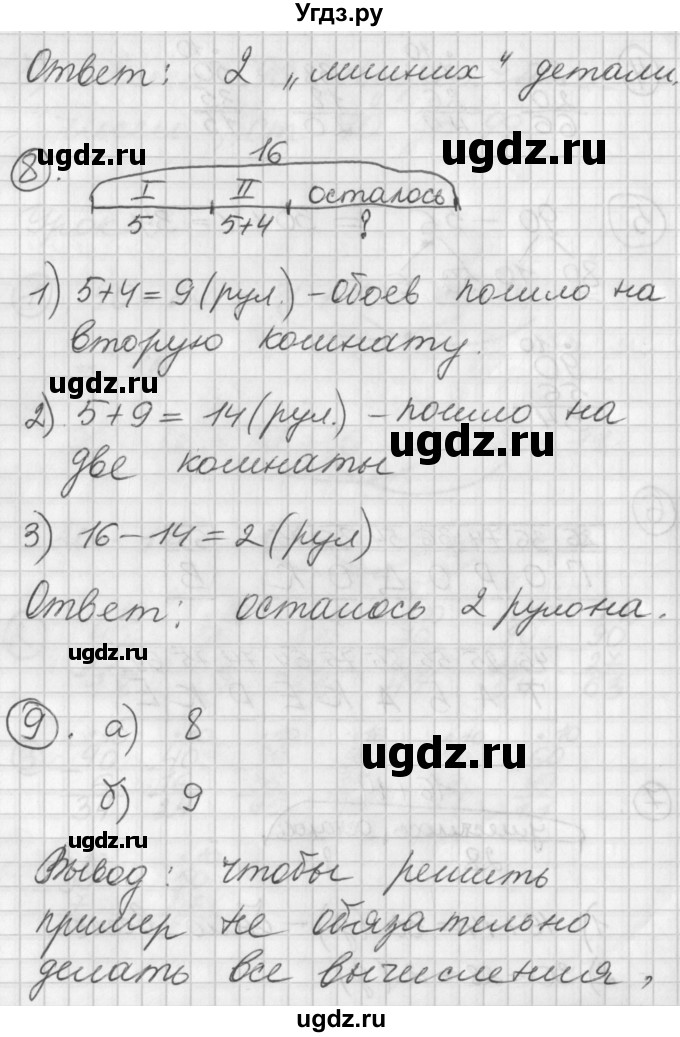 Угдз.ру
Ответ: 2 „лишних" детали.
ugdz.ru ugdz.ru
8. 16
I II осталось
5 5+4 ?
1) 5+4=9 (рул.) - обоев пошло на
вторую комнату.
ugdz.ru
2) 5+9= 14 (рул.) - пошло на
ugdz.ru
две комнаты
3) 16-14=2 (рул)
Ответ: осталось 2 рулона.
ugdz.ru
9. а) 8
ugdz.ru
б) 9
ugdz.ru
Вывод: чтобы решить
пример не обязательно
делать все вычисления,
ugdz.ru